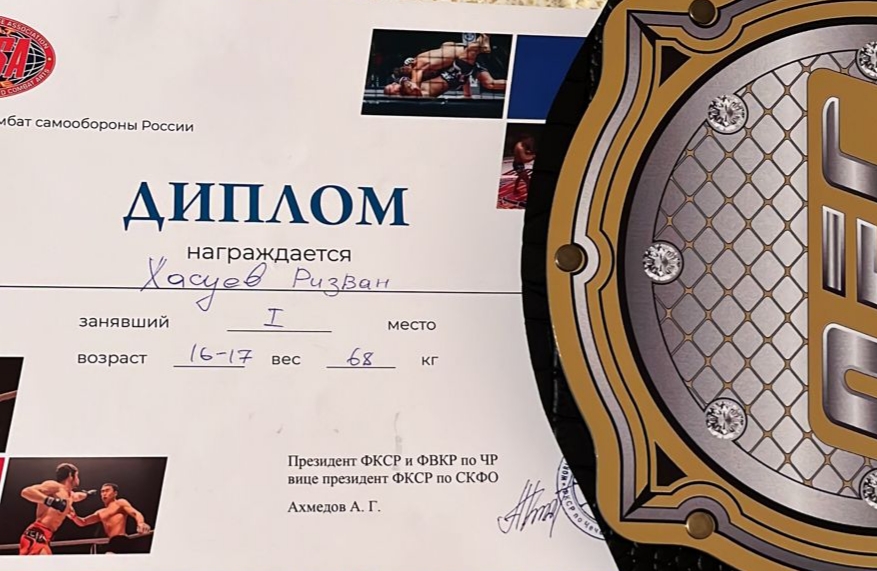 E ASSOCIATION
SA
D COMBAT ARTS
мбат самообороны России
ДИПЛОМ
награждается
Хасуев Ризван
занявший I место
возраст 16-17 вес 68 кг
Президент ФКСР и ФВКР по ЧР
вице президент ФКСР по СКФО
Ахмедов А. Г.